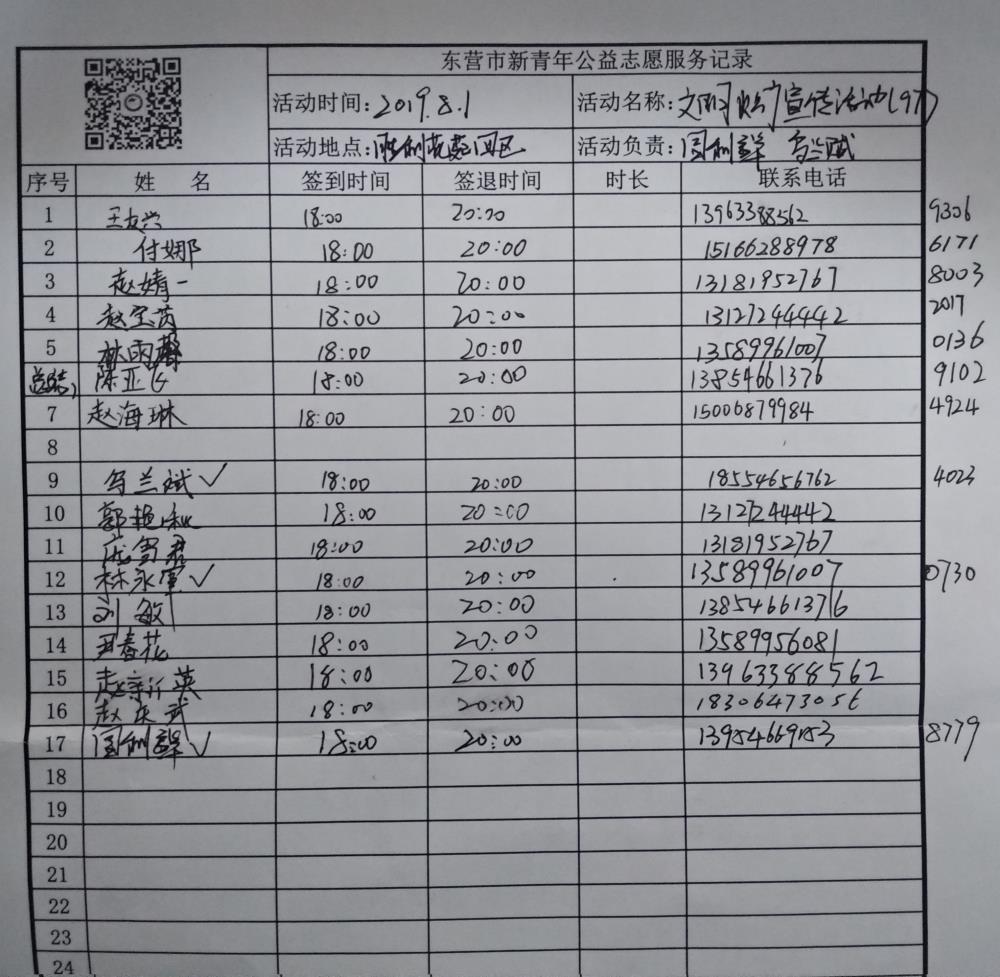 东营市新青年公益志愿服务记录
活动时间:2019.8.1 活动名称:文明 宣传活动(97)
活动地点:胜利花苑四区 活动负责:周利群 乌兰斌
序号 姓 名 签到时间 签退时间 时长 联系电话
1 王友兴 18:00 20:00 13963388562 9306
2 付娜 18:00 20:00 15166288978 6171
3 赵婧一 18:00 20:00 13181952767 8003
4 赵宝茵 18:00 20:00 13127244442 2017
5 林雨馨 18:00 20:00 13589961007 0136
总结, 陈亚飞 18:00 20:00 13854661376 9102
7 赵海琳 18:00 20:00 15006879984 4924
8
9 乌兰斌✓ 18:00 20:00 18554656762 4023
10 郭艳秋 18:00 20:00 13127244442
11 庞雪君 18:00 20:00 13181952767
12 林永军✓ 18:00 20:00 13589961007 0730
13 刘敏 18:00 20:00 13854661376
14 尹春花 18:00 20:00 13589956081
15 赵新英 18:00 20:00 13963388562
16 赵庆武 18:00 20:00 18306473056
17 周利群✓ 18:00 20:00 13954669153 8779
18
19
20
21
22
23
24